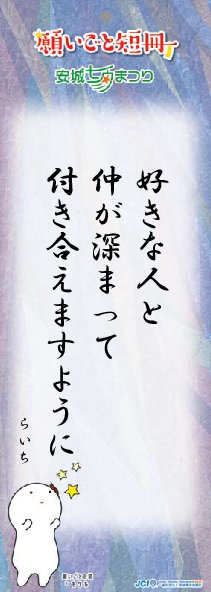 願いごと短冊
安城七夕まつり
好きな人と
仲が深まって
付き合えますように
らいち
願いごと短冊
JCI